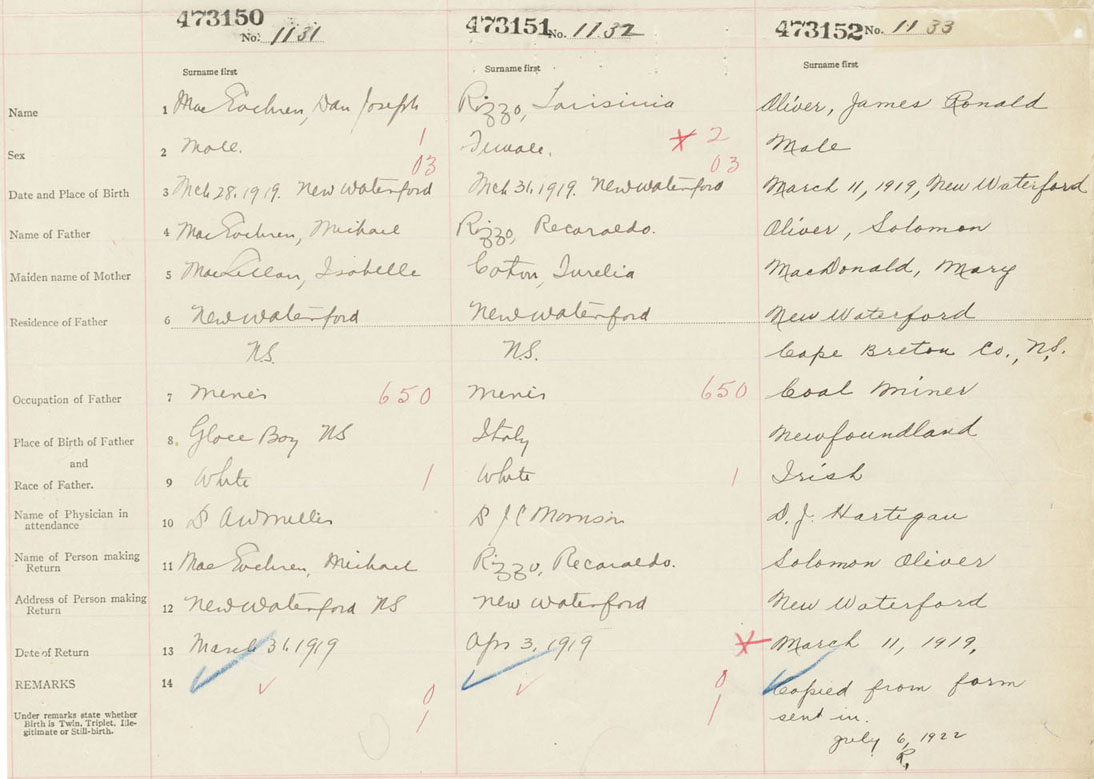 473150 No. 1131 473151 No. 1132 473152 No. 11 33
Surname first Surname first Surname first
Name 1 MacEachren, Dan Joseph Rizzo, Oliver, James Ronald
Sex 2 Male. 1 Female. X 2 Male
03 03
Date and Place of Birth 3 Mch 28. 1919. New Waterford Mch 31. 1919. New Waterford March 11, 1919, New Waterford
Name of Father 4 MacEachren, Michael Rizzo, Recaraldo. Oliver, Solomon
Maiden name of Mother 5 MacLellan, Isabelle MacDonald, Mary
Residence of Father 6 New Waterford New Waterford New Waterford
N.S. N.S. Cape Breton Co., N.S.
Occupation of Father 7 650 650 Coal Miner
Place of Birth of Father 8. Glace Bay NS Italy Newfoundland
and
Race of Father. 9 White 1 White 1 Irish
Name of Physician in
attendance 10 D J C Morrison D. J. Hartigan
Name of Person making
Return 11 MacEachren, Michael Rizzo, Recaraldo. Solomon Oliver
Address of Person making
Return 12 New Waterford NS New Waterford New Waterford
Date of Return 13 March 31. 1919 Apr 3, 1919 X March 11, 1919,
REMARKS 14 0 0 Copied from form
Under remarks state whether
Birth is Twin, Triplet, Ille-
gitimate or Still-birth. 1 1 sent in.
July 6, 1922
R,